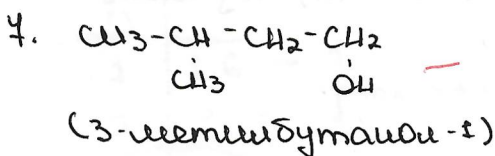 7. CH3-CH-CH2-CH2
CH3 OH
(3-метилбутанол-1)